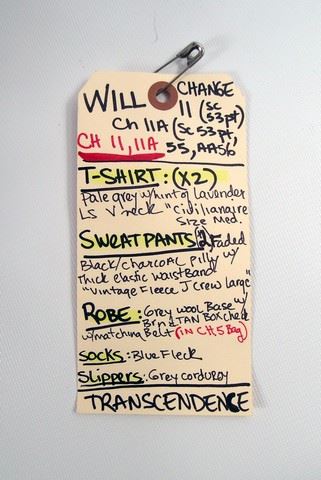 WILL CHANGE
11 (SC 53pt,
Ch 11A (SC 53pt,
CH 11, 11A 55, AA56
T-SHIRT: (X2)
Pale grey w/hint of lavender
LS V neck "Civilianaire
Size Med.
SWEATPANTS #2 Faded
Black/charcoal Pilly w/
thick elastic waistBand
"Vintage Fleece J Crew large"
ROBE: Grey wool Base w/
Brn & TAN Box check
w/matching Belt (IN CH. 5 Bag)
SOCKS: Blue Fleck
Slippers: Grey corduroy
TRANSCENDENCE